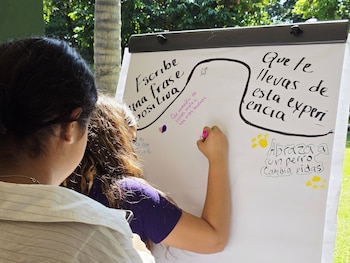 Escribe
una frase
positiva
Que le
llevas de
esta experi
encia
Abraza a
un perro
Cambia vidas